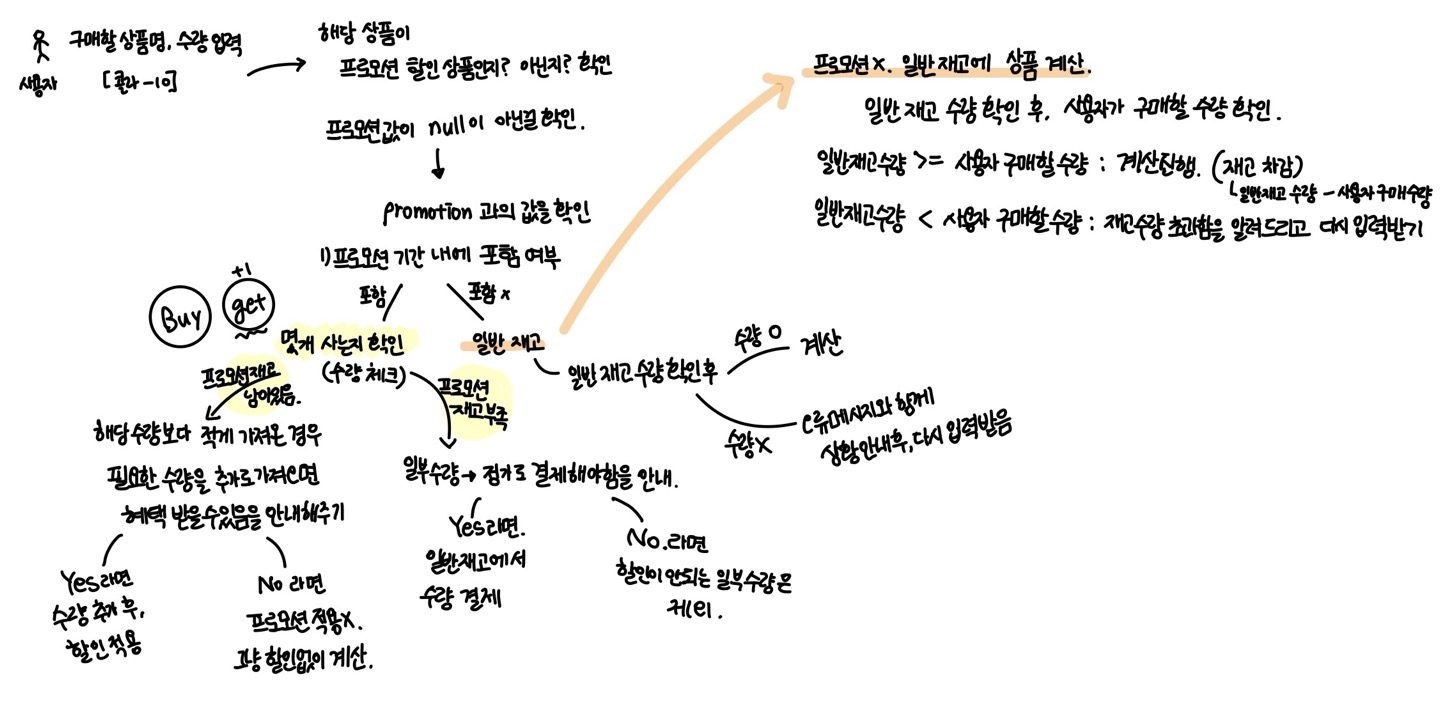 구매할 상품명, 수량 입력
사용자
[콜라-10]
해당 상품이
프로모션 할인 상품인지? 아닌지? 확인
프로모션값이 null이 아닌걸 확인.
promotion 과의 값을 확인
1) 프로모션 기간 내에 포함 여부
포함
포함 x
+1
Buy
get
몇개 사는지 확인
(수량 체크)
일반 재고
프로모션재고
남아있음.
프로모션
재고부족
해당수량보다 적게 가져온 경우
필요한 수량을 추가로 가져오면
혜택 받을수있음을 안내해주기
Yes라면
수량 추가 후,
할인 적용
No 라면
프로모션 적용x.
그냥 할인없이 계산.
일부수량→ 정가로 결제해야함을 안내.
Yes라면.
일반재고에서
수량 결제
No.라면
할인이 안되는 일부수량은
제외.
일반 재고 수량 확인 후
수량 O
계산
수량 X
오류메시지와 함께
상황안내후, 다시 입력받음
프로모션x. 일반 재고에 상품 계산.
일반 재고 수량 확인 후, 사용자가 구매할 수량 확인.
일반재고수량 >= 사용자 구매할수량 : 계산진행. (재고 차감)
ㄴ일반재고 수량 - 사용자 구매수량
일반재고수량 < 사용자 구매할수량 : 재고수량 초과함을 알려드리고 다시 입력받기